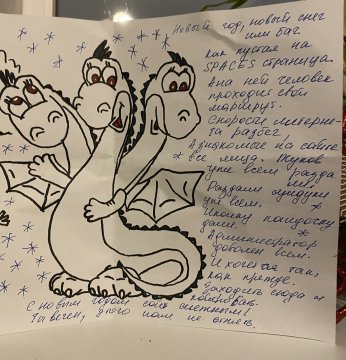 Новый год, новый снег
или баг
как пустая на
SPACES страница.
А на ней человек
проходит свой
маршрут.
Скорости интерне-
та разбег.
А знакомые на сайте
все лица. Жуков
уже всем разда
ли!
Раздали
уж всем.
Иконку
дали.
Администратор
доволен всем.
И хочется так,
как прежде.
Заходим сюда и
С новым годом снежным!
Ты вечен, этого нам не отнять.